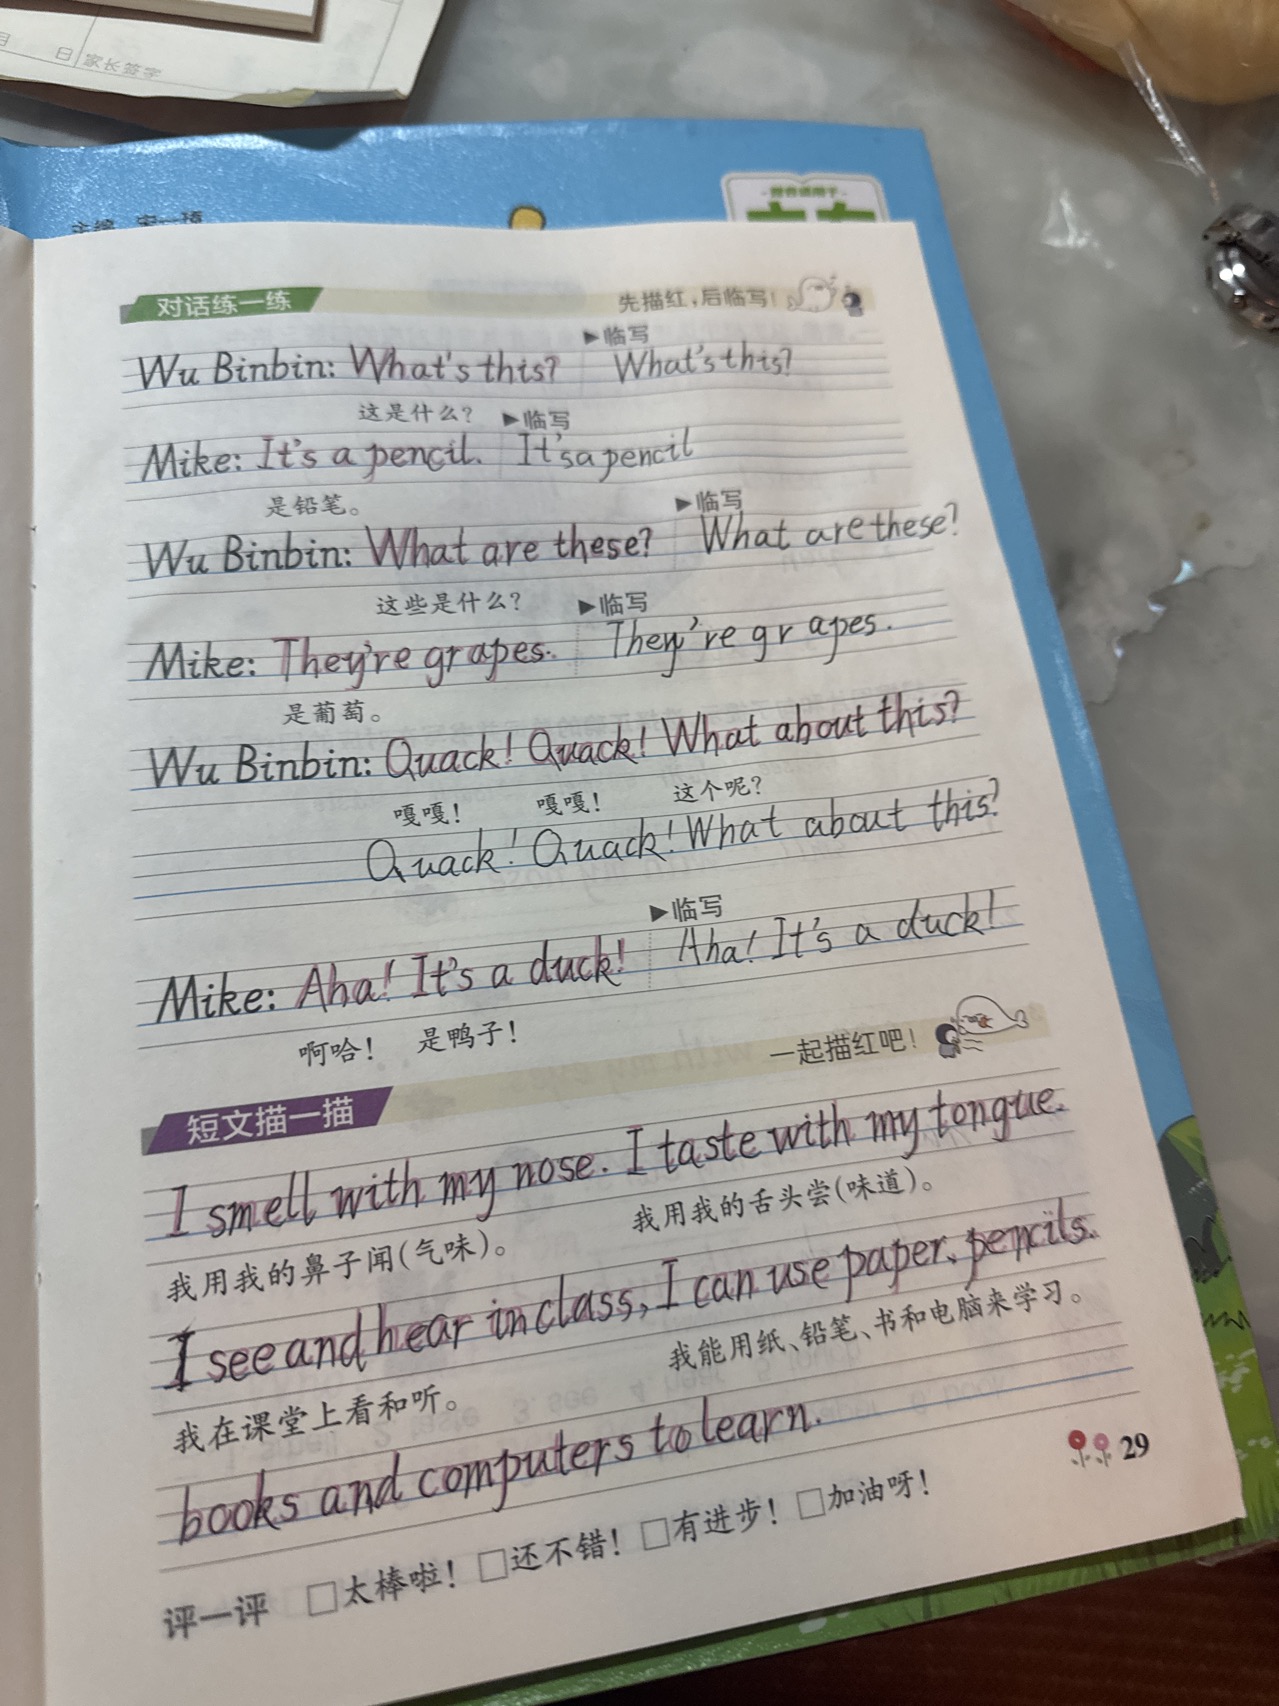 日 家长签字
对话练一练 先描红，后临写！
▶临写
Wu Binbin: What's this? What's this?
这是什么？ ▶临写
Mike: It's a pencil. It's a pencil
是铅笔。 ▶临写
Wu Binbin: What are these? What are these?
这些是什么？ ▶临写
Mike: They're grapes. They're grapes.
是葡萄。
Wu Binbin: Quack! Quack! What about this?
嘎嘎！ 嘎嘎！ 这个呢？
Quack! Quack! What about this?
▶临写
Mike: Aha! It's a duck! Aha! It's a duck!
啊哈！ 是鸭子！
短文描一描 一起描红吧！
I smell with my nose. I taste with my tongue.
我用我的鼻子闻（气味）。 我用我的舌头尝（味道）。
I see and hear in class, I can use paper, pencils.
我在课堂上看和听。 我能用纸、铅笔、书和电脑来学习。
books and computers to learn.
29
评一评 □太棒啦！ □还不错！ □有进步！ □加油呀！